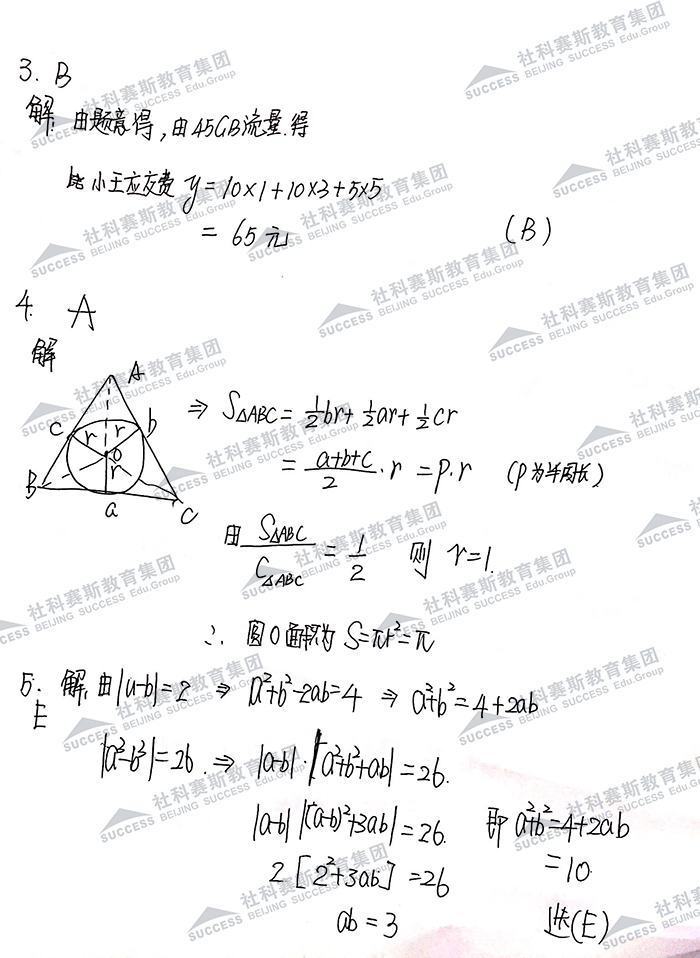 3. B
解: 由题意得, 由45GB流量.得
小王应交费 y=10×1+10×3+5×5
= 65元 (B)
4. A
解
A
c r r b
O
r
B a C
⇒ S△ABC = 1/2br + 1/2ar + 1/2cr
= (a+b+c)/2 · r = p·r (p为半周长)
由 S△ABC/C△ABC = 1/2 则 r=1.
∴ 圆O面积为 S=πr²=π
5. 解, 由|a-b|=2 ⇒ a²+b²-2ab=4 ⇒ a²+b²=4+2ab
E
|a³-b³|=26. ⇒ |a-b|·|a²+b²+ab|=26.
|a-b| |(a-b)²+3ab|=26. 即 a²+b²=4+2ab
2[2²+3ab]=26 =10.
ab=3 选(E)
社科赛斯教育集团
SUCCESS BEIJING SUCCESS Edu.Group